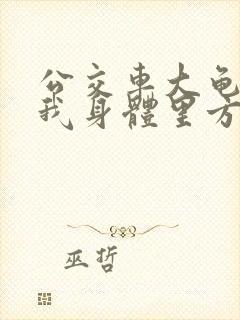 公交車大龟
我身體里方
巫哲